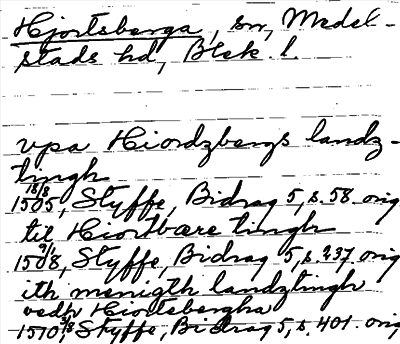 Hjortsberga, sn, Medel-
stads hd, Blek. l.
upa Hiordzbergs landz-
tingh
18/8
1505, Styffe, Bidrag 5, s. 58. orig
til Hiortbære tingh
1508, Styffe, Bidrag 5, s. 237 orig
ith menigth landztingh
vedh Hiortsbergha
1510, Styffe, Bidrag 5, s. 401. orig